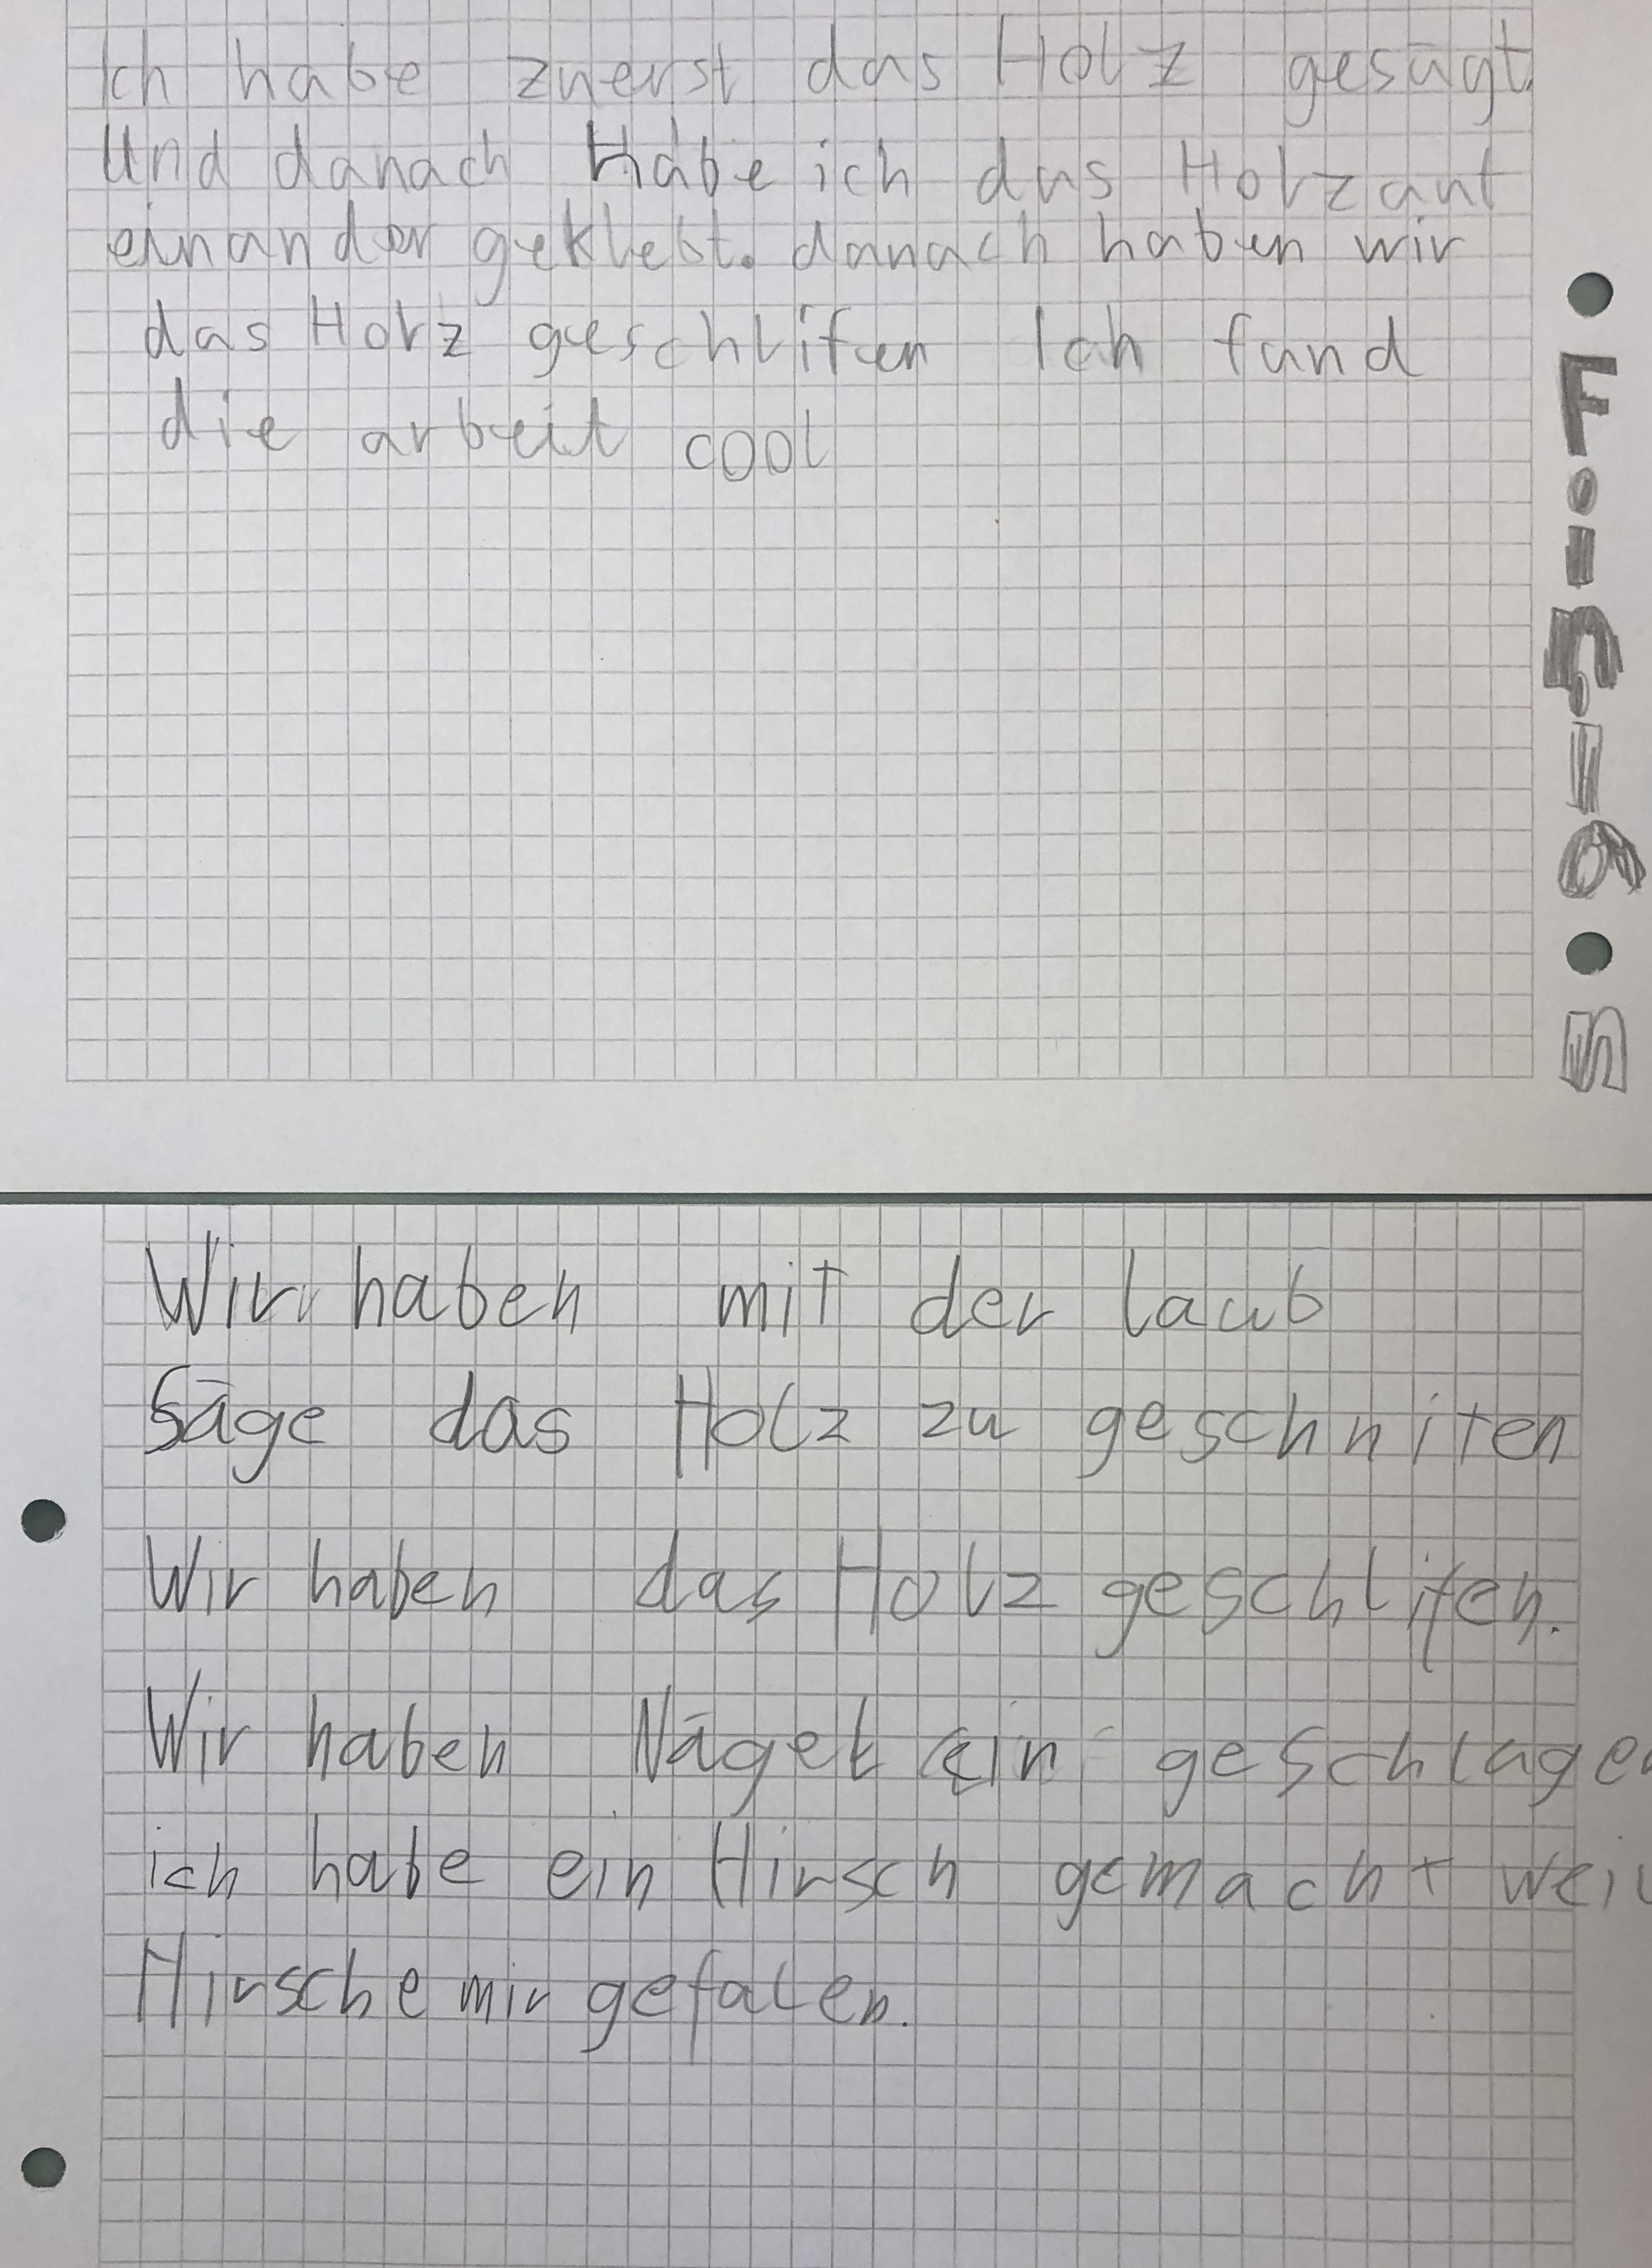 Ich habe zuerst das Holz gesägt.
Und danach Habe ich das Holz auf
einander geklebt. danach haben wir
das Holz geschlifen Ich fand
die arbeit cool
Wir haben mit der laub
Säge das Holz zu geschniten
Wir haben das Holz geschlifen.
Wir haben Nägel ein geschlagen
ich habe ein Hirsch gemacht weil
Hirsche mir gefalen.